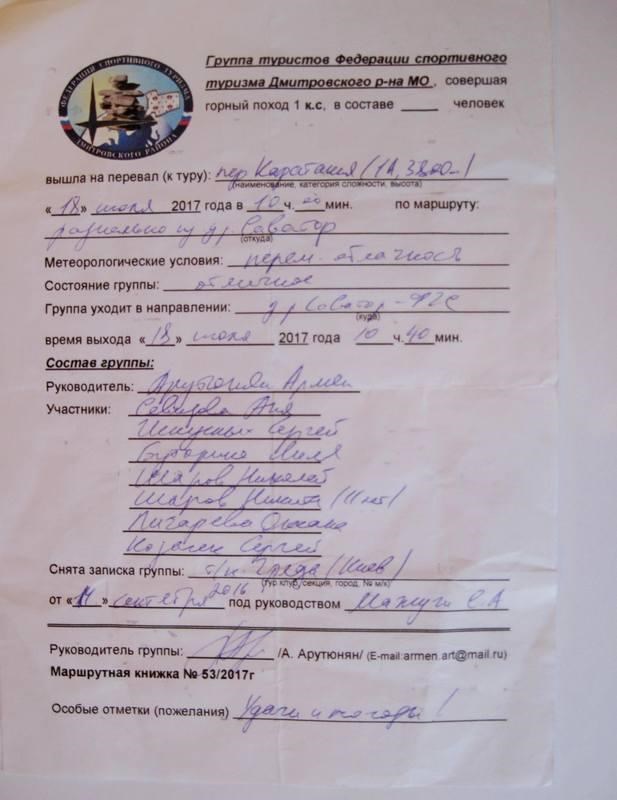 ФЕДЕРАЦИЯ СПОРТИВНОГО ТУРИЗМА
ДМИТРОВСКОГО РАЙОНА
Группа туристов Федерации спортивного
туризма Дмитровского р-на МО, совершая
горный поход 1 к.с, в составе _____ человек
вышла на перевал (к туру): пер (1А, 3800м)
(наименование, категория сложности, высота)
«18» июля 2017 года в 10 ч. 00 мин. по маршруту:
радиально из д.р. Саватор
(откуда)
Метеорологические условия: перем. облачность
Состояние группы: отличное
Группа уходит в направлении: д.р Саватор -
(куда)
время выхода «18» июля 2017 года 10 ч. 40 мин.
Состав группы:
Руководитель: Арутюнян Армен
Участники: Аня
Сергей
Шаров Николай
Шаров Никита (11 лет)
Лигарева Оксана
Сергей
Снята записка группы: т/к (Киев)
(тур клуб, секция, город, № м/к)
от «11» сентября 2016 под руководством С.А
Руководитель группы: /А. Арутюнян/ (E-mail:armen.art@mail.ru)
Маршрутная книжка № 53/2017г
Особые отметки (пожелания) Удачи и погоды!